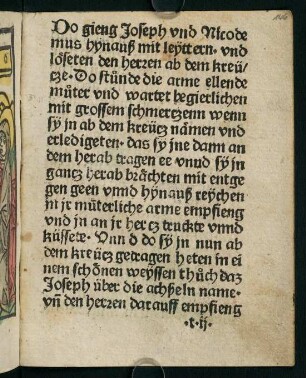 Do gieng Joseph vnd Nicode
mus hynauß mit leyttern· vnd
löseten den herzen ab dem kreü⸗
cze· Do stůnde die arme ellende
můter vnd wartet begierlichen
mit grossem schmerczenn wenn
sy jn ab dem kreücz nämen vnd
erledigeten· das sy jne dann an
dem herab tragen ee vnnd sy jn
gancz herab brächten mit entge
gen geen vnnd hynauß reychen
in jr můterliche arme empfieng
vnd jn an jr hercz truckte vnnd
küssete· Vnn d do sy in nun ab
dem kreücz getragen heten in ei
nem schönen weyssen thůch daz
Joseph über die achßeln name·
vn̄ den herzen darauff empfieng
·t·ij·